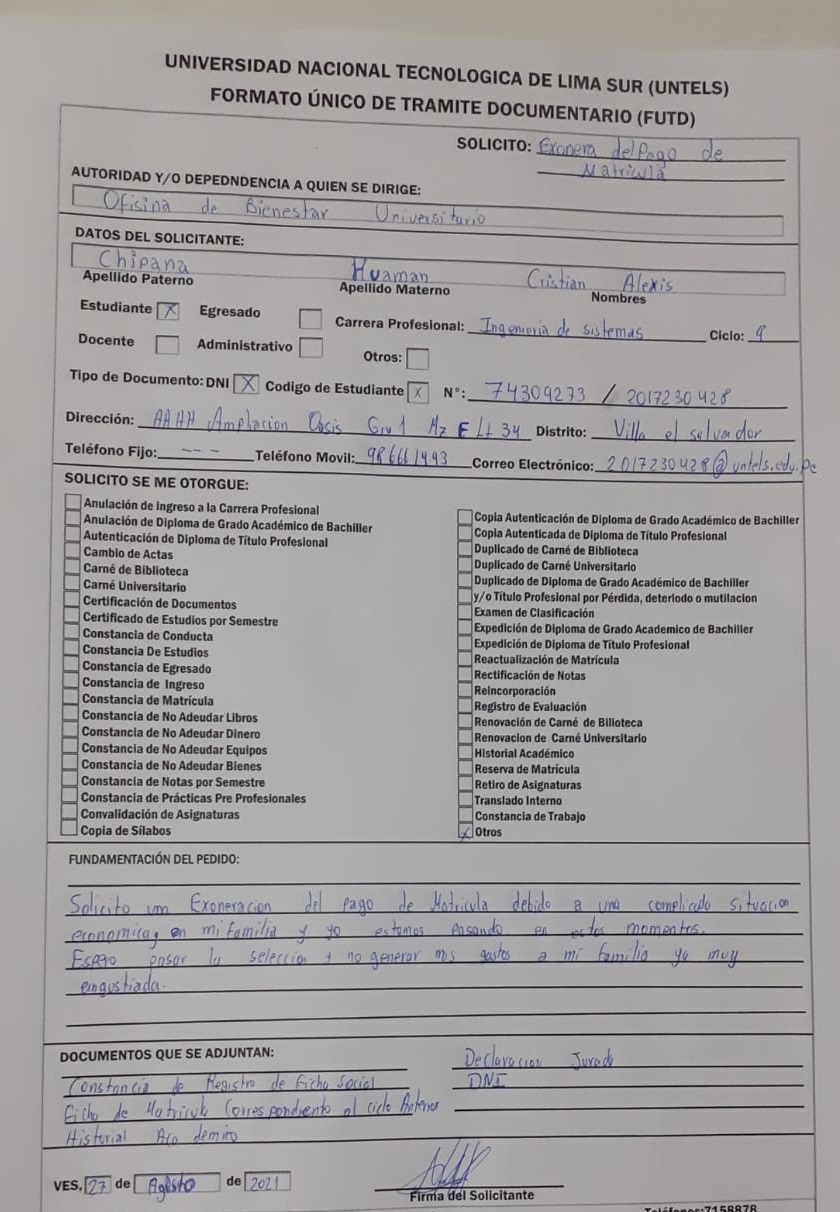 UNIVERSIDAD NACIONAL TECNOLOGICA DE LIMA SUR (UNTELS)
FORMATO ÚNICO DE TRAMITE DOCUMENTARIO (FUTD)
SOLICITO: Exonera del Pago de
Matricula
AUTORIDAD Y/O DEPEDNDENCIA A QUIEN SE DIRIGE:
Ofisina de Bienestar Universitario
DATOS DEL SOLICITANTE:
Chipana Huaman Cristian Alexis
Apellido Paterno Apellido Materno Nombres
Estudiante X Egresado Carrera Profesional: Ingenieria de sistemas Ciclo: 9
Docente Administrativo Otros:
Tipo de Documento: DNI X Codigo de Estudiante X N°: 74309273 / 2017230428
Dirección: AAHH Ampliacion Oasis Gru 1 Mz E Lt 34 Distrito: Villa el salvador
Teléfono Fijo: --- Teléfono Movil: 986661493 Correo Electrónico: 2017230428@untels.edu.pe
SOLICITO SE ME OTORGUE:
Anulación de ingreso a la Carrera Profesional
Anulación de Diploma de Grado Académico de Bachiller
Autenticación de Diploma de Título Profesional
Cambio de Actas
Carné de Biblioteca
Carné Universitario
Certificación de Documentos
Certificado de Estudios por Semestre
Constancia de Conducta
Constancia De Estudios
Constancia de Egresado
Constancia de Ingreso
Constancia de Matrícula
Constancia de No Adeudar Libros
Constancia de No Adeudar Dinero
Constancia de No Adeudar Equipos
Constancia de No Adeudar Bienes
Constancia de Notas por Semestre
Constancia de Prácticas Pre Profesionales
Convalidación de Asignaturas
Copia de Sílabos
Copia Autenticación de Diploma de Grado Académico de Bachiller
Copia Autenticada de Diploma de Título Profesional
Duplicado de Carné de Biblioteca
Duplicado de Carné Universitario
Duplicado de Diploma de Grado Académico de Bachiller
y/o Título Profesional por Pérdida, deteriodo o mutilacion
Examen de Clasificación
Expedición de Diploma de Grado Academico de Bachiller
Expedición de Diploma de Título Profesional
Reactualización de Matrícula
Rectificación de Notas
Reincorporación
Registro de Evaluación
Renovación de Carné de Bilioteca
Renovacion de Carné Universitario
Historial Académico
Reserva de Matrícula
Retiro de Asignaturas
Translado Interno
Constancia de Trabajo
X Otros
FUNDAMENTACIÓN DEL PEDIDO:
Solicito um Exoneracion del pago de Matricula debido a una complicado situacion
economica, en mi familia y yo estamos pasando en estos momentos.
Espero pasar la seleccion y no generar mas gastos a mi familia ya muy
angustiada.
DOCUMENTOS QUE SE ADJUNTAN:
Constancia de Registro de Ficha Social
Ficha de Matricula Correspondiente al ciclo Anterior
Historial Academico
Declaracion Jurada
DNI
VES, 27 de Agosto de 2021
Firma del Solicitante
Teléfonos:7158878